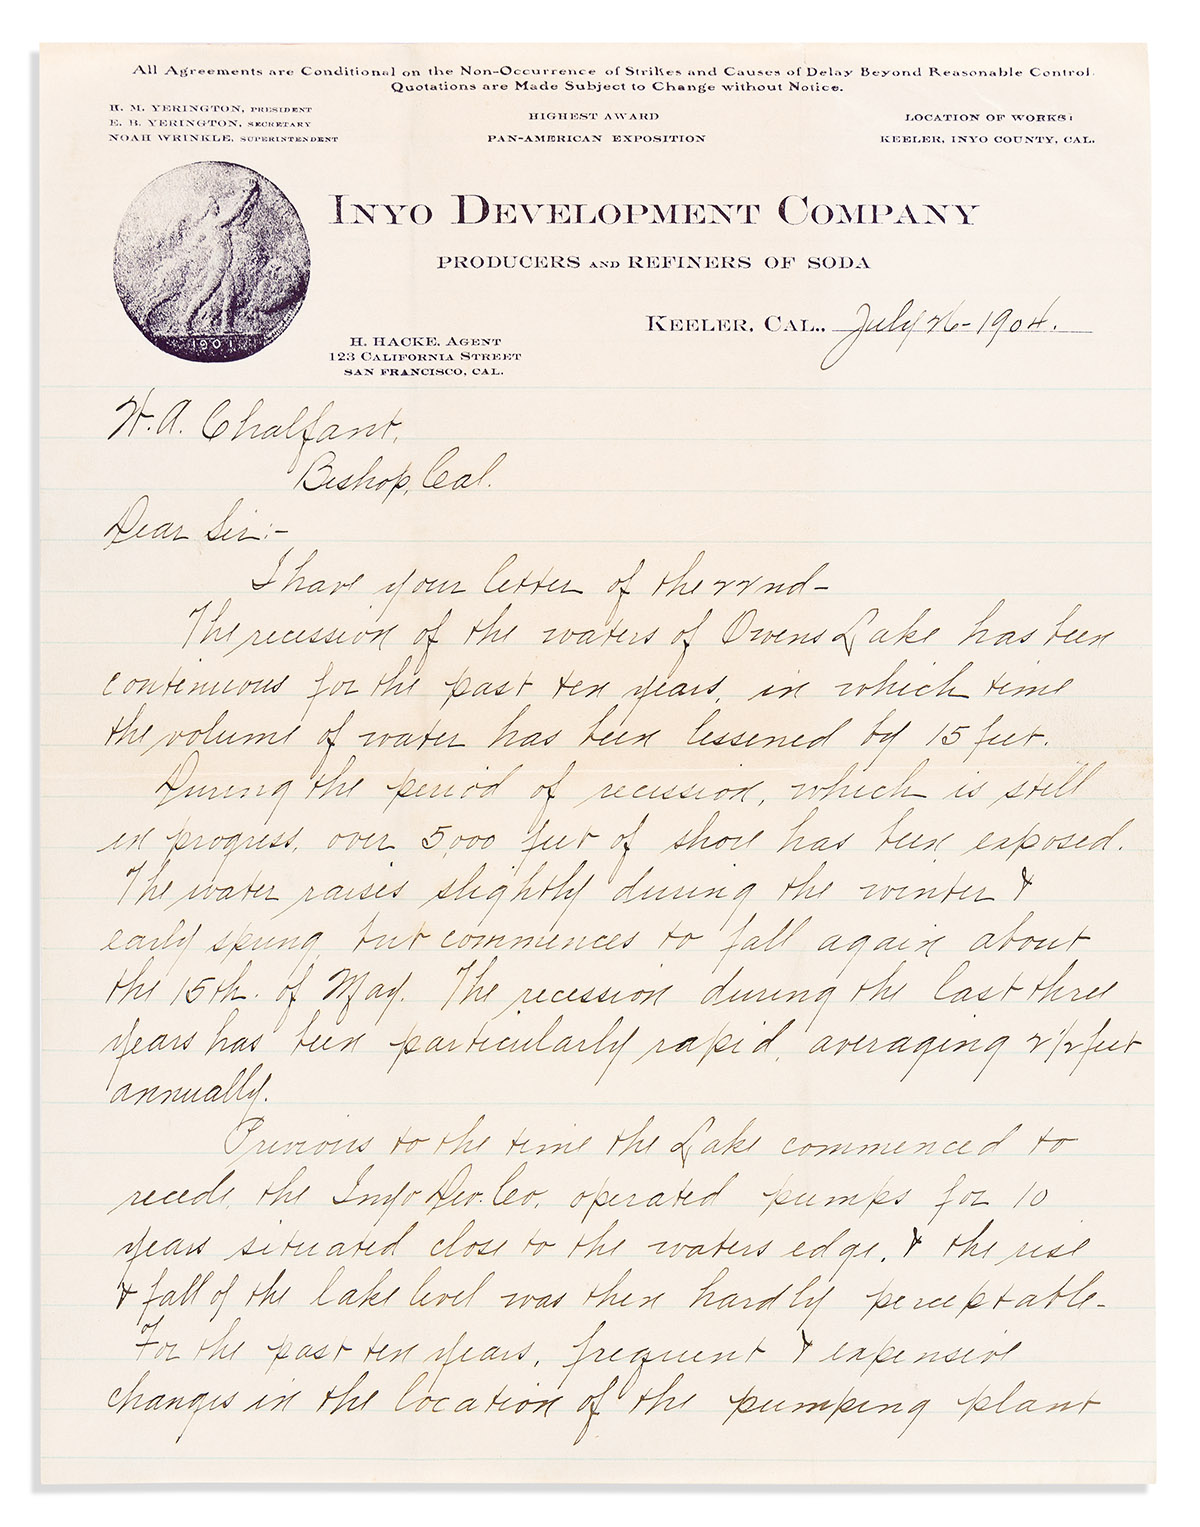 All Agreements are Conditional on the Non-Occurrence of Strikes and Causes of Delay Beyond Reasonable Control.
Quotations are Made Subject to Change without Notice.
H. M. YERINGTON, PRESIDENT
E. B. YERINGTON, SECRETARY
NOAH WRINKLE, SUPERINTENDENT
HIGHEST AWARD
PAN-AMERICAN EXPOSITION
LOCATION OF WORKS:
KEELER, INYO COUNTY, CAL.
INYO DEVELOPMENT COMPANY
PRODUCERS AND REFINERS OF SODA
1901
KEELER, CAL., July 26-1904.
H. HACKE, AGENT
123 CALIFORNIA STREET
SAN FRANCISCO, CAL.
W. A. Chalfant,
Bishop, Cal.
Dear Sir:-
I have your letter of the 22nd-
The recession of the waters of Owens Lake has been
continuous for the past ten years, in which time
the volume of water has been lessened by 15 feet.
During the period of recession, which is still
in progress, over 5,000 feet of shore has been exposed.
The water raises slightly during the winter &
early spring, but commences to fall again about
the 15th. of May. The recession during the last three
years has been particularly rapid, averaging 2 1/2 feet
annually.
Previous to the time the Lake commenced to
recede, the Inyo Dev. Co. operated pumps for 10
years situated close to the waters edge, & the rise
& fall of the lake level was then hardly perceptable-
For the past ten years, frequent & expensive
changes in the location of the pumping plant